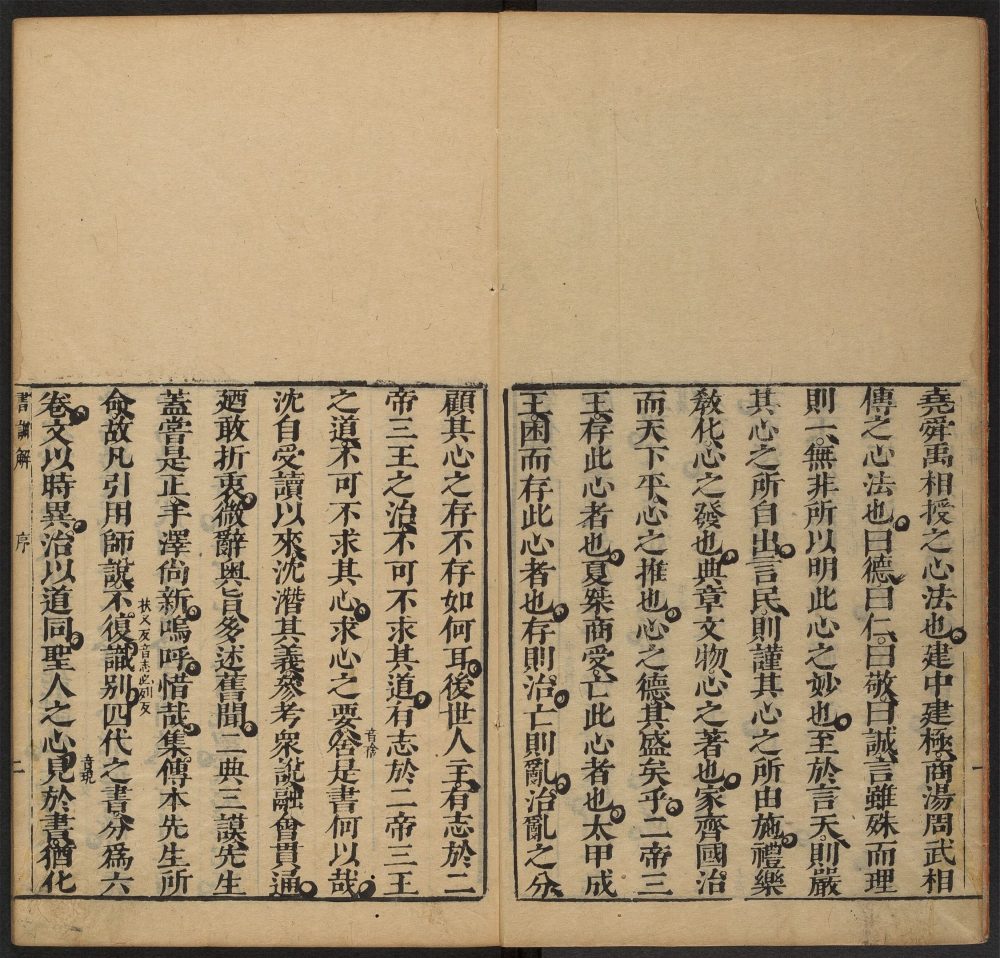 堯舜禹相授之心法也建中建極商湯周武相
傳之心法也曰德曰仁曰敬曰誠言雖殊而理
則一無非所以明此心之妙也至於言天則嚴
其心之所自出言民則謹其心之所由施禮樂
敎化心之發也典章文物心之著也家齊國治
而天下平心之推也心之德其盛矣乎二帝三
王存此心者也夏桀商受亡此心者也太甲成
王困而存此心者也存則治亡則亂治亂之分
顧其心之存不存如何耳後世人主有志於二
帝三王之治不可不求其道有志於二帝三王
之道不可不求其心求心之要舍是書何以哉
音捨
沈自受讀以來沈潛其義參考衆說融會貫通
廼敢折衷微辭奧旨多述舊聞二典三謨先生
蓋嘗是正手澤尙新嗚呼惜哉集傳本先生所
命故凡引用師說不復識别四代之書分爲六
扶又反音志必列反
卷文以時異治以道同聖人之心見於書猶化
音現
書講解 序 二